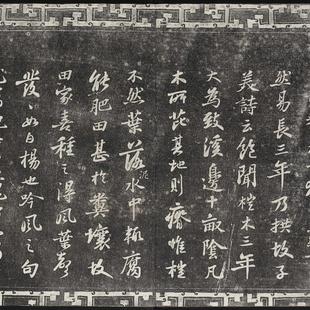 然易長三年乃拱故子
美詩云飽聞榿木三年
大為致溪邊十畝陰凡
木所芘其地則瘠惟榿
不然葉落泥水中輒腐
能肥田甚於糞壤故
田家喜種之得風葉聲
發〻如白楊也吟風之句